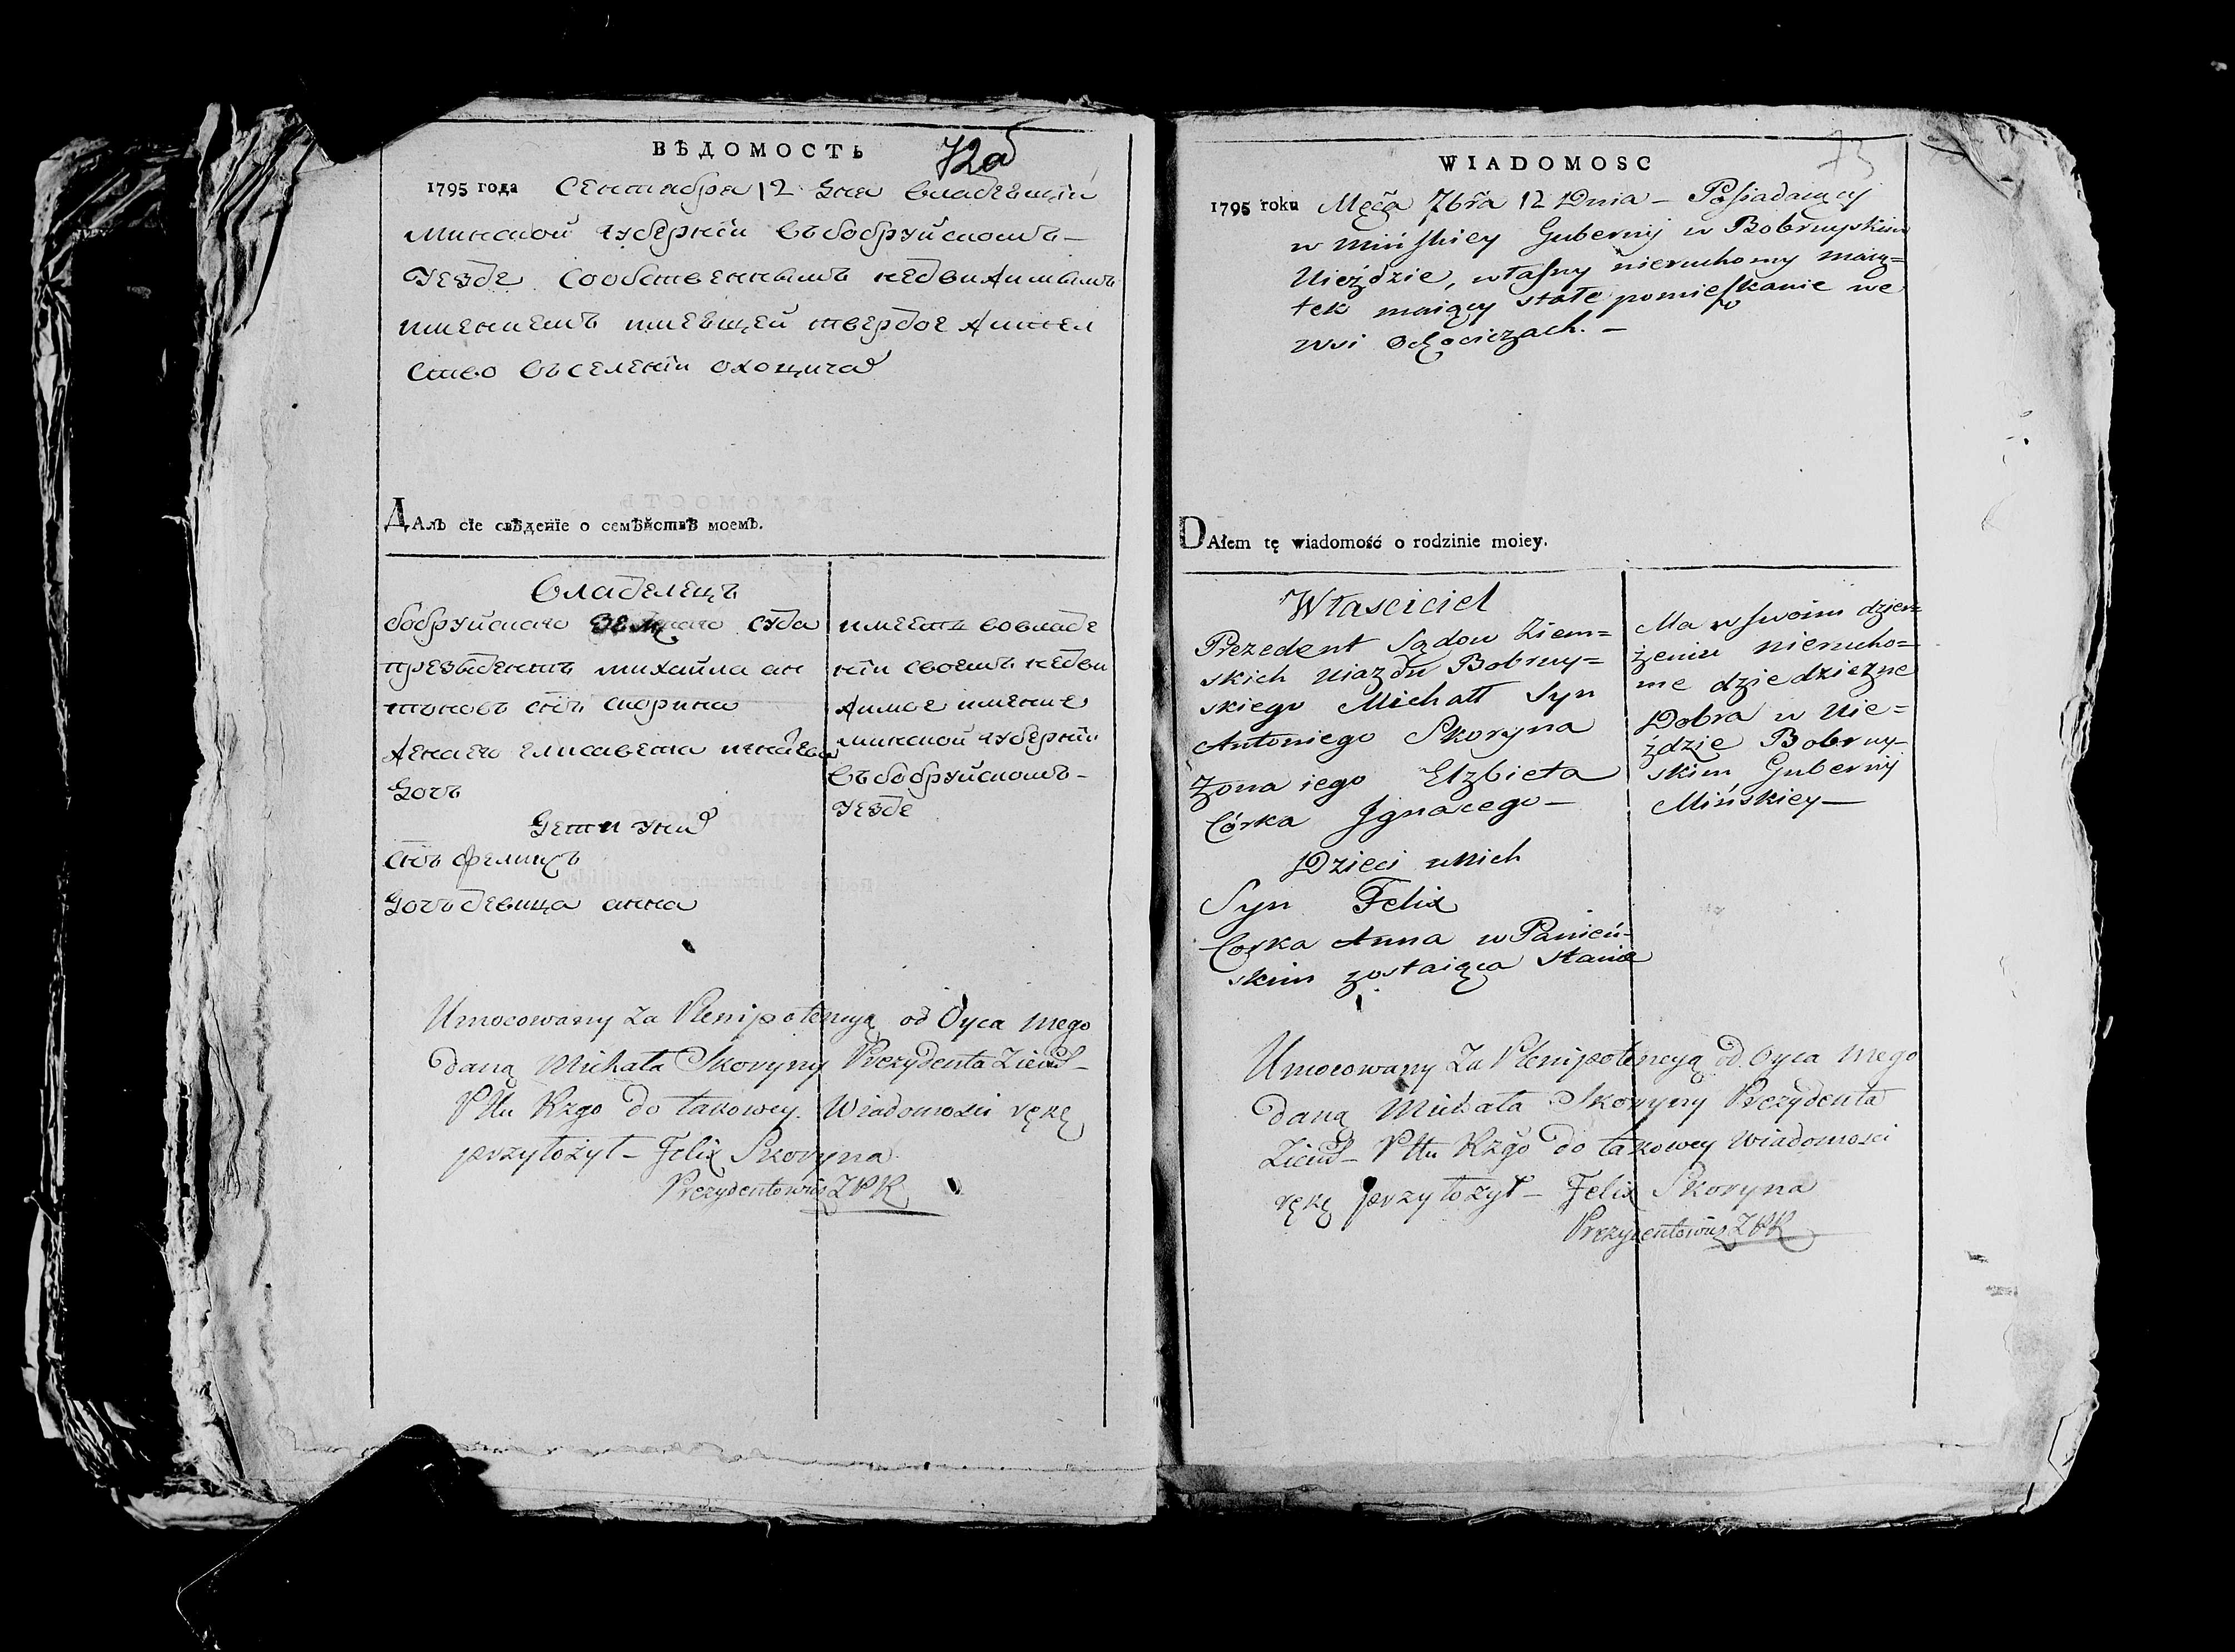 ВѢДОМОСТЬ
72об
1795 года Сентабра 12 дня владеющiй
минской губернiи въ бобруйскомъ –
уезде сообственнымъ недвижимымъ
имениемъ имеющей твердое жител
ство въ селенiи охоцичах
ДАлъ сїе свѣденїе о семѣйствѣ моемъ.
владелецъ
бобруйскаго суда
презыдентъ михаила ан
тоновъ снъ скорина
жена его елисавета игнацева
дочь
Дети у них
снъ фелицъ
дочь девица анна
имеетъ во владе
нiи своемъ недви
жимое имение
минской губернiи
въ бобруйскомъ –
уезде
Umocowany Za Plenipotencyą od Oyca mego
daną Michała Skoryny Prezydenta Ziems –
Pttu Rzgo do takowey Wiadomosci rękę
przyłożył – Felix Skoryna
Prezydentowicz ZPR
73
WIADOMOSC
1795 roku Męca 7bra 12 Dnia – Posiadaiący
w Minskiey Gubernij w Bobruyskim
Uieżdzie, własny nieruchomy maią=
tek maiący stałe pomieszkanie we
wsi Ochocizach. –
DAłem tę wiadomość o rodzinie moiey.
Własciciel
Prezedent Sądow Ziem=
skich Uiazdu Bobruy=
skiego Michałł Syn
Antoniego Skoryna
Żona iego Elzbieta
Córka Jgnacego –
Dzieci u nich
Syn Felix
Corka Anna w Panień=
skim zostaiąca stanie
Ma w swoim dzier=
żeniu nierucho=
me dziedziczne
Dobra w Uie=
ździe Bobruy=
skim Guberny
Mińskiey –
Umocowany Za Plenipotencyą od Oyca mego
daną Michała Skoryny Prezydenta
Ziems – Pttu Rzgo do takowey Wiadomosci
rękę przyłożył – Felix Skoryna
Prezydentowicz ZPR